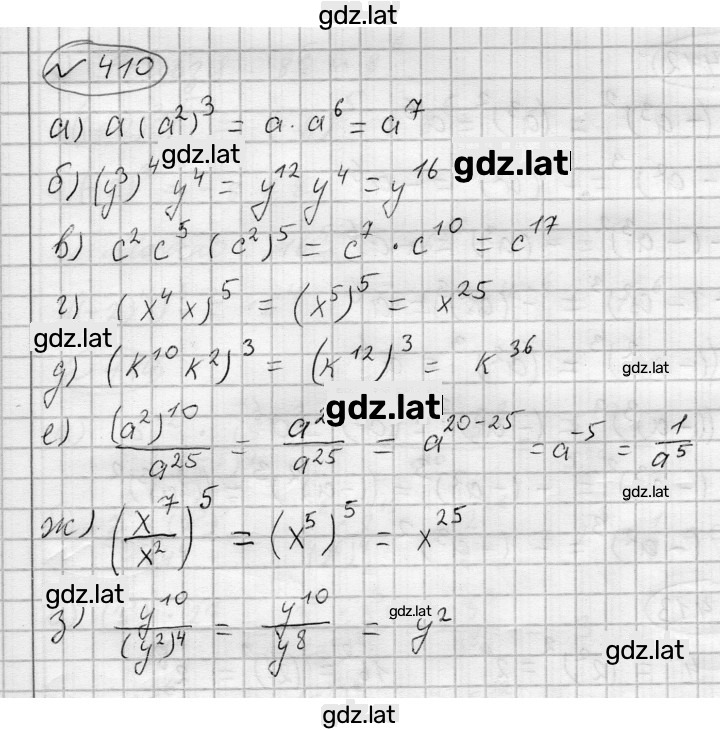 gdz.lat
№ 410
а) a (a²)³ = a · a⁶ = a⁷
gdz.lat
gdz.lat
б) (y³)⁴ y⁴ = y¹² y⁴ = y¹⁶
в) c² c⁵ (c²)⁵ = c⁷ · c¹⁰ = c¹⁷
г) (x⁴ x)⁵ = (x⁵)⁵ = x²⁵
gdz.lat
д) (k¹⁰ k²)³ = (k¹²)³ = k³⁶
gdz.lat
gdz.lat
е) (a²)¹⁰/a²⁵ = a²/a²⁵ = a²⁰⁻²⁵ = a⁻⁵ = 1/a⁵
gdz.lat
ж) (x⁷/x²)⁵ = (x⁵)⁵ = x²⁵
gdz.lat
gdz.lat
з) y¹⁰/(y²)⁴ = y¹⁰/y⁸ = y²
gdz.lat
gdz.lat